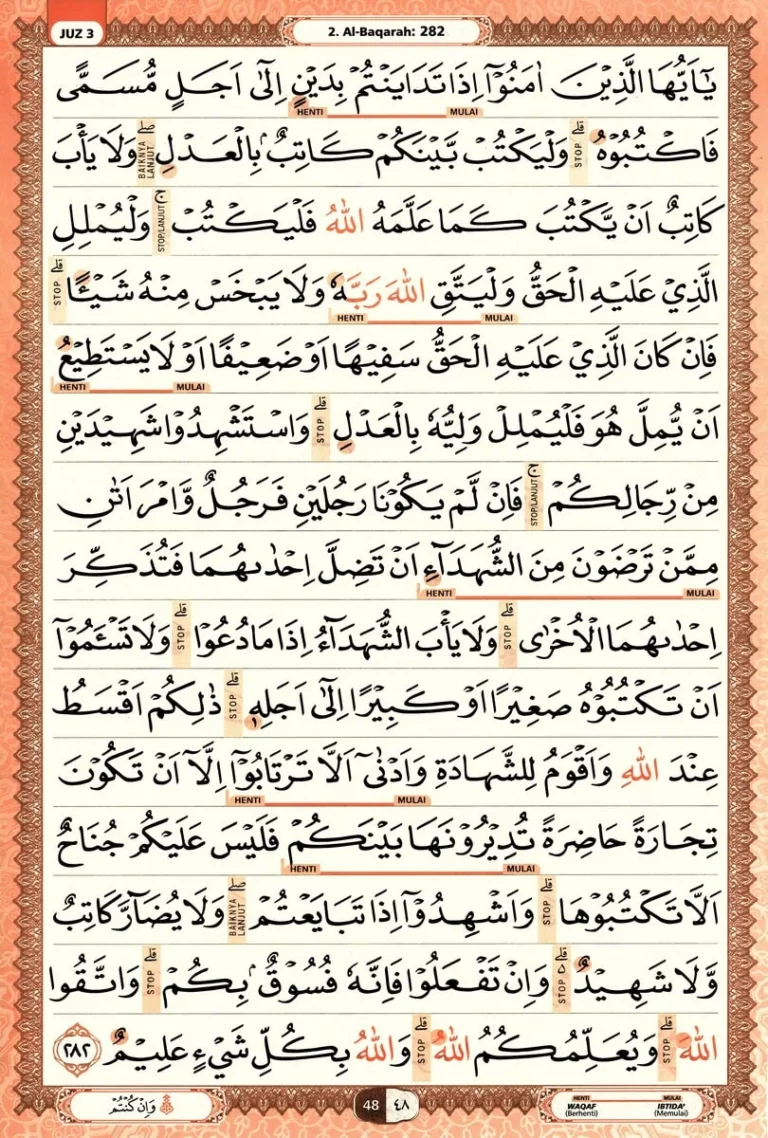 JUZ 3
2. Al-Baqarah: 282
يٰٓاَيُّهَا الَّذِيْنَ اٰمَنُوْٓا اِذَا تَدَايَنْتُمْ بِدَيْنٍ اِلٰٓى اَجَلٍ مُّسَمًّى
HENTI MULAI
فَاكْتُبُوْهُۗ قلى STOP وَلْيَكْتُبْ بَّيْنَكُمْ كَاتِبٌۢ بِالْعَدْلِۖ صلى BAIKNYA LANJUT وَلَا يَأْبَ
كَاتِبٌ اَنْ يَّكْتُبَ كَمَا عَلَّمَهُ اللّٰهُ فَلْيَكْتُبْ ج STOP/LANJUT وَلْيُمْلِلِ
الَّذِيْ عَلَيْهِ الْحَقُّ وَلْيَتَّقِ اللّٰهَ رَبَّهٗ وَلَا يَبْخَسْ مِنْهُ شَيْـًٔا قلى STOP
HENTI MULAI
فَاِنْ كَانَ الَّذِيْ عَلَيْهِ الْحَقُّ سَفِيْهًا اَوْ ضَعِيْفًا اَوْ لَا يَسْتَطِيْعُ
HENTI MULAI
اَنْ يُّمِلَّ هُوَ فَلْيُمْلِلْ وَلِيُّهٗ بِالْعَدْلِ قلى STOP وَاسْتَشْهِدُوْا شَهِيْدَيْنِ
مِنْ رِّجَالِكُمْ ج STOP/LANJUT فَاِنْ لَّمْ يَكُوْنَا رَجُلَيْنِ فَرَجُلٌ وَّامْرَاَتٰنِ
مِمَّنْ تَرْضَوْنَ مِنَ الشُّهَدَاۤءِ اَنْ تَضِلَّ اِحْدٰىهُمَا فَتُذَكِّرَ
HENTI MULAI
اِحْدٰىهُمَا الْاُخْرٰى قلى STOP وَلَا يَأْبَ الشُّهَدَاۤءُ اِذَا مَا دُعُوْا قلى STOP وَلَا تَسْـَٔمُوْٓا
اَنْ تَكْتُبُوْهُ صَغِيْرًا اَوْ كَبِيْرًا اِلٰٓى اَجَلِهٖ قلى STOP ذٰلِكُمْ اَقْسَطُ
عِنْدَ اللّٰهِ وَاَقْوَمُ لِلشَّهَادَةِ وَاَدْنٰىٓ اَلَّا تَرْتَابُوْٓا اِلَّآ اَنْ تَكُوْنَ
HENTI MULAI
تِجَارَةً حَاضِرَةً تُدِيْرُوْنَهَا بَيْنَكُمْ فَلَيْسَ عَلَيْكُمْ جُنَاحٌ
HENTI MULAI
اَلَّا تَكْتُبُوْهَا قلى STOP وَاَشْهِدُوْٓا اِذَا تَبَايَعْتُمْ صلى BAIKNYA LANJUT وَلَا يُضَاۤرَّ كَاتِبٌ
وَّلَا شَهِيْدٌ قلى STOP وَاِنْ تَفْعَلُوْا فَاِنَّهٗ فُسُوْقٌۢ بِكُمْ قلى STOP وَاتَّقُوا
اللّٰهَ قلى STOP وَيُعَلِّمُكُمُ اللّٰهُ قلى STOP وَاللّٰهُ بِكُلِّ شَيْءٍ عَلِيْمٌ ٢٨٢
وَاِنْ كُنْتُمْ
48 ٤٨
HENTI MULAI
WAQAF (Berhenti) IBTIDA' (Memulai)